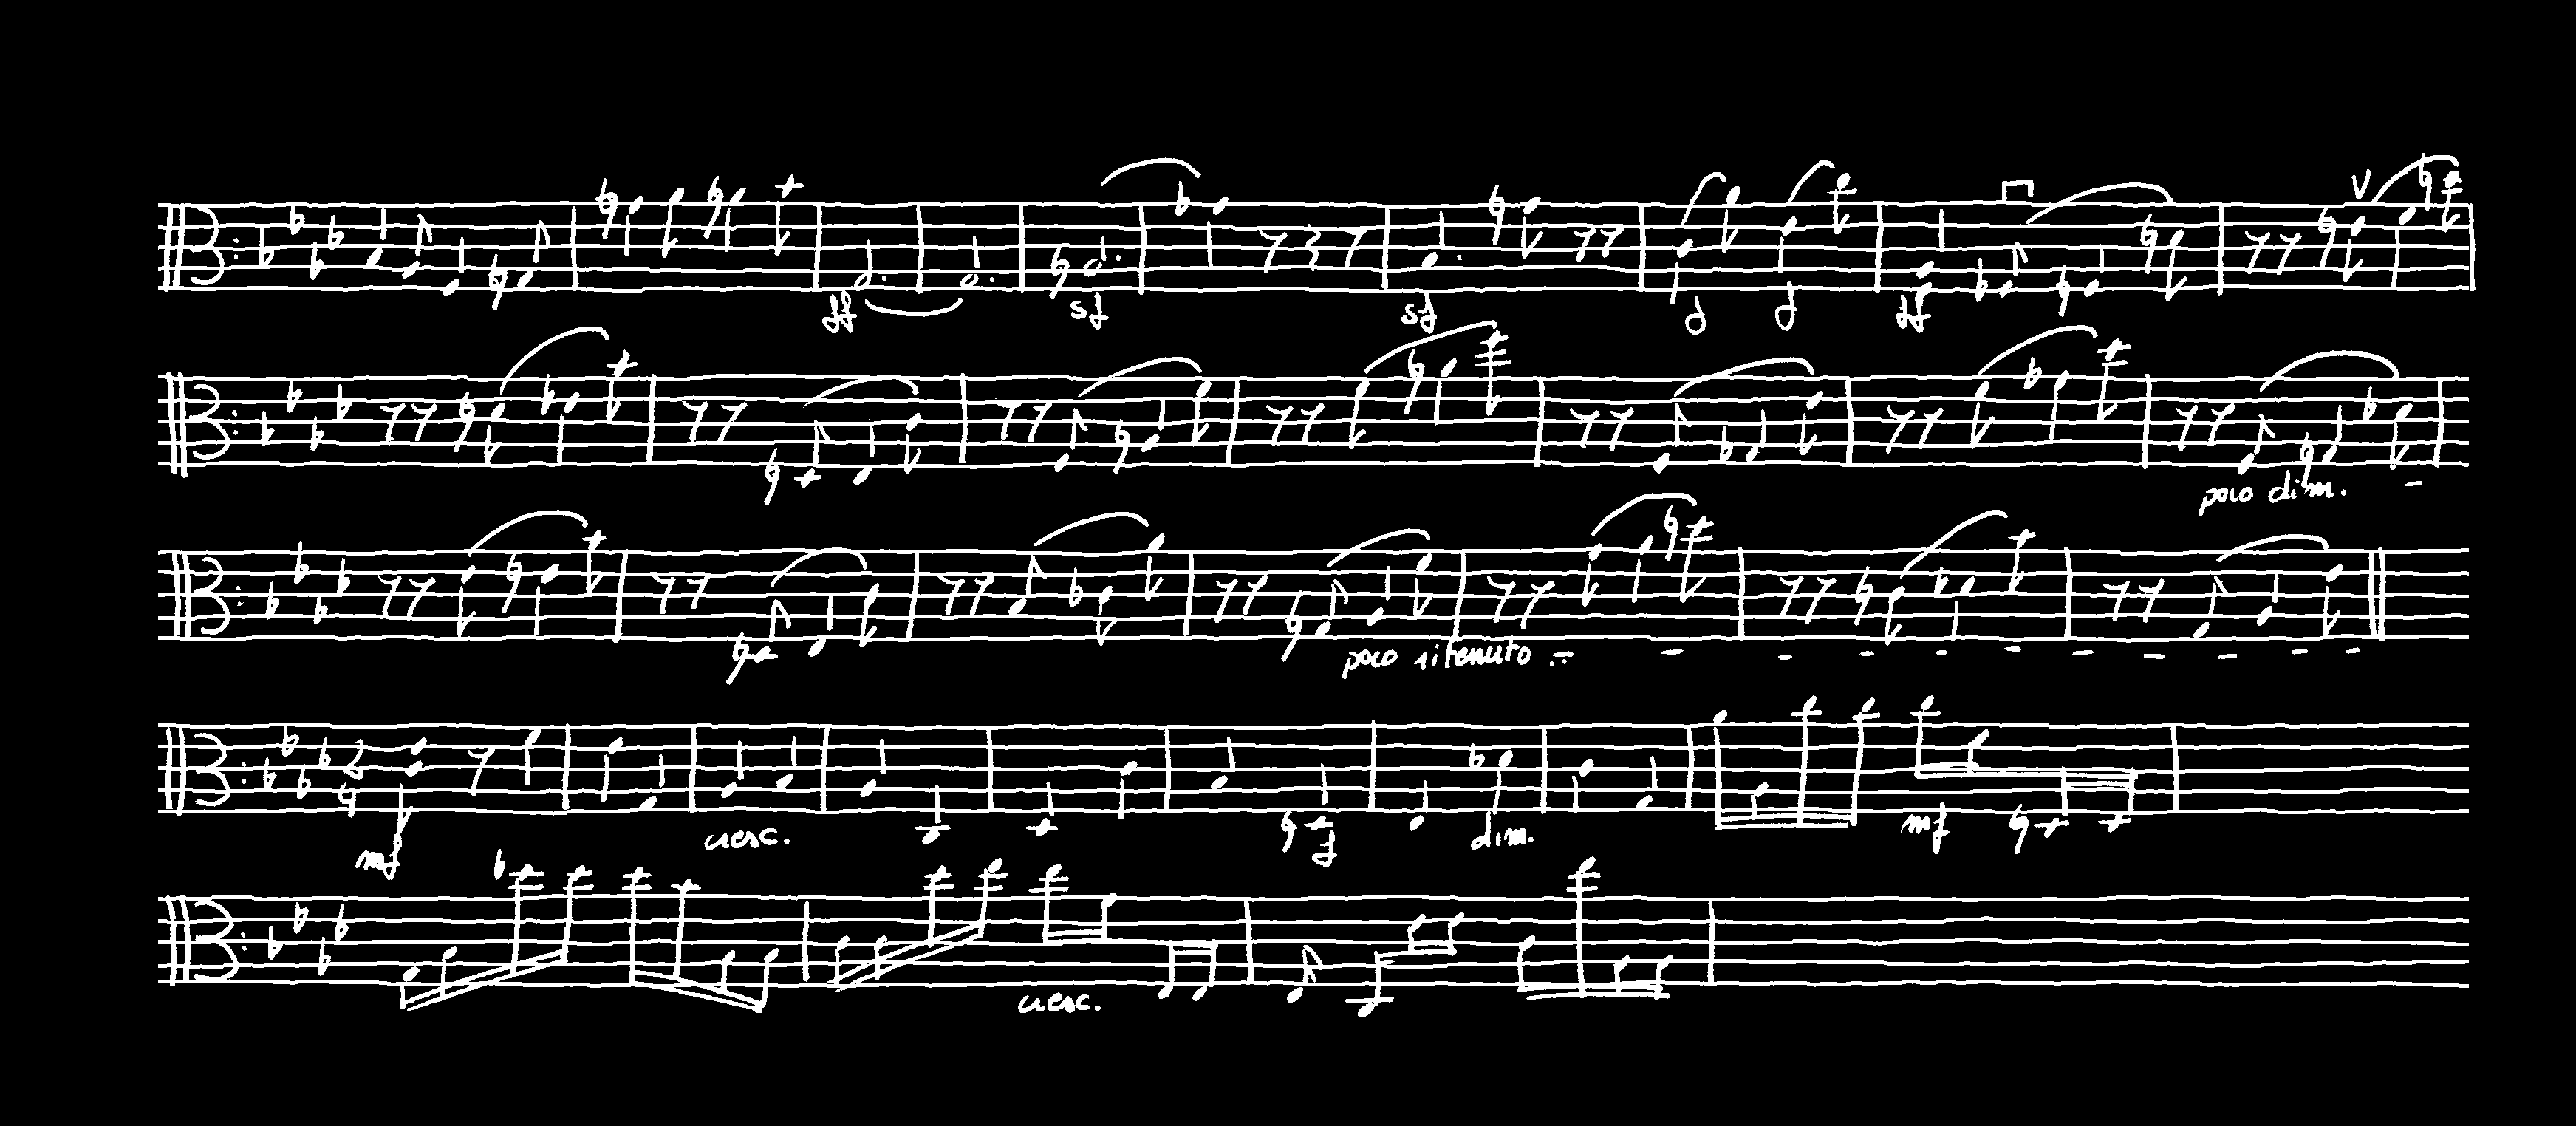 ff sf sf f f ff V
poco dim. -
poco ritenuto .. - - - - - - - - - -
2 4 mf cresc. f dim. mf
cresc.